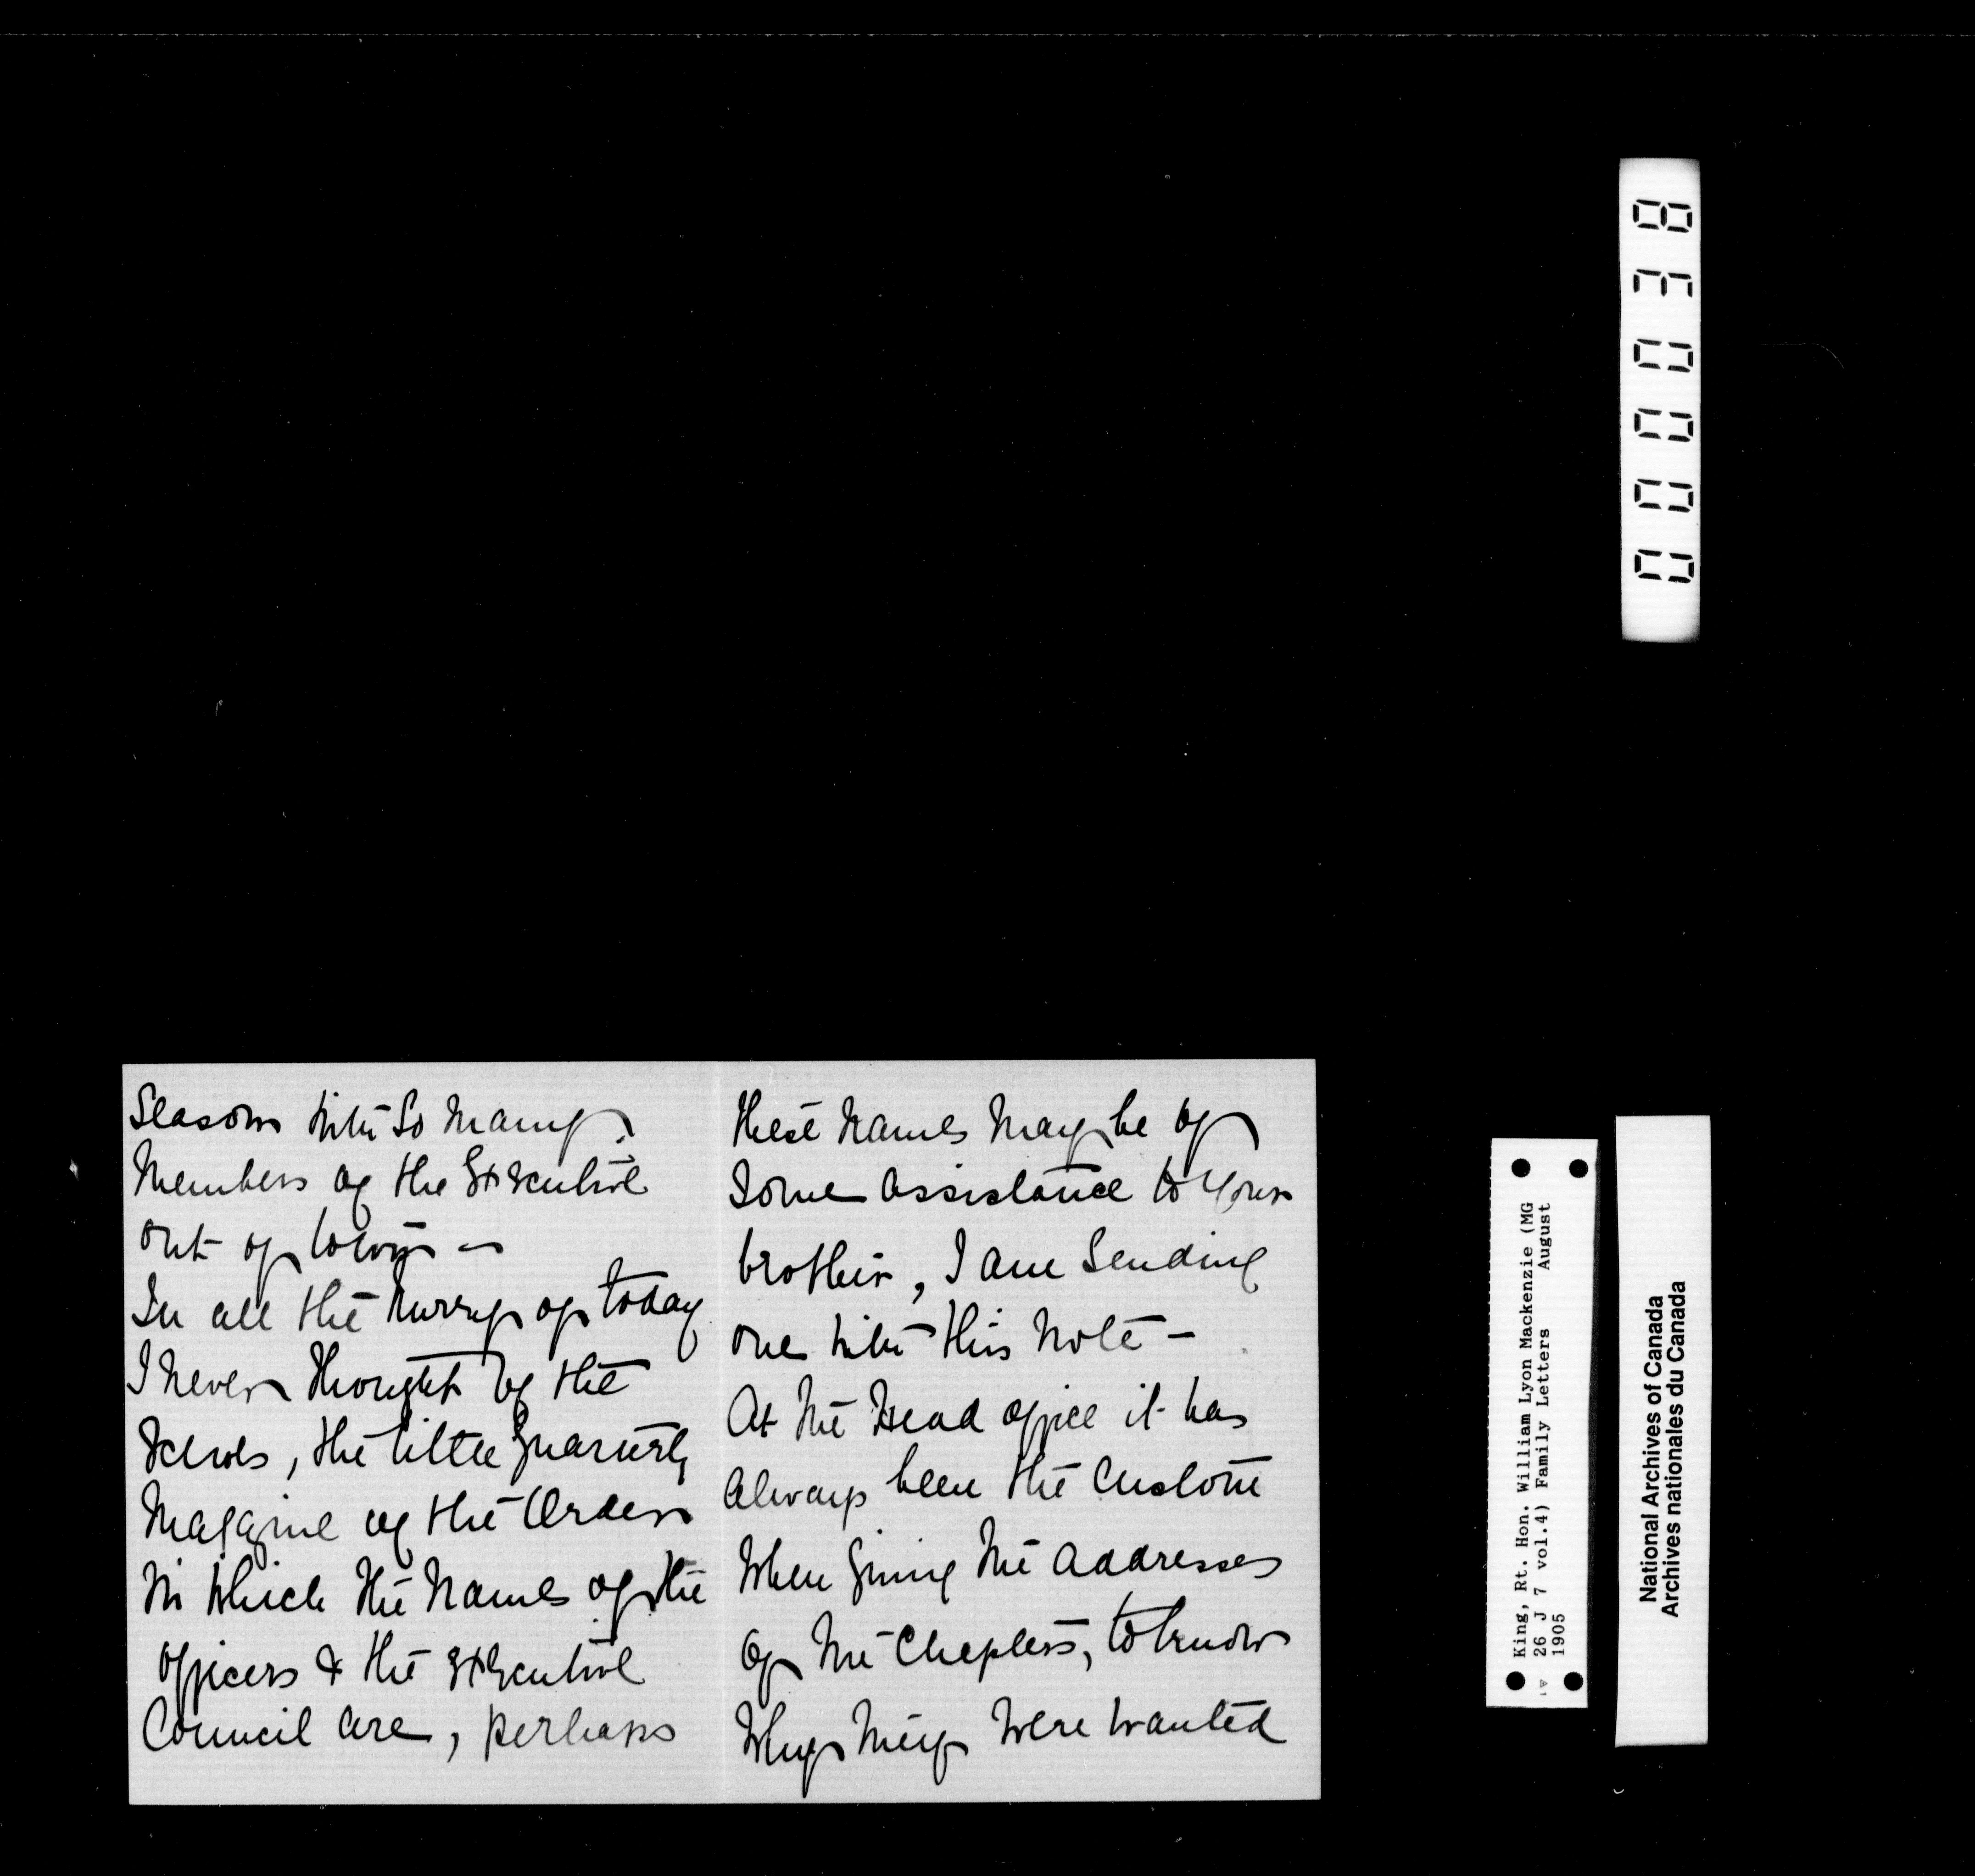 Season with so many
Members of the Executive
out of town –
In all the hurry of today
I never thought of the
the little quarterly
Magazine of the Order
in which the names of the
officers & the Executive
Council are, perhaps
these names may be of
some assistance to your
brother, I am sending
one with this note –
At the Head office it has
always been the custom
when giving the addresses
of the Chapters, to know
why they were wanted
000078
King, Rt. Hon. William Lyon Mackenzie (MG
26 J 7 vol.4) Family Letters August
1905
National Archives of Canada
Archives nationales du Canada